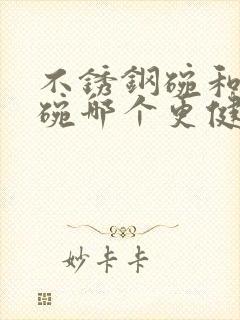 不銹鋼碗和
碗哪个更健
妙卡卡